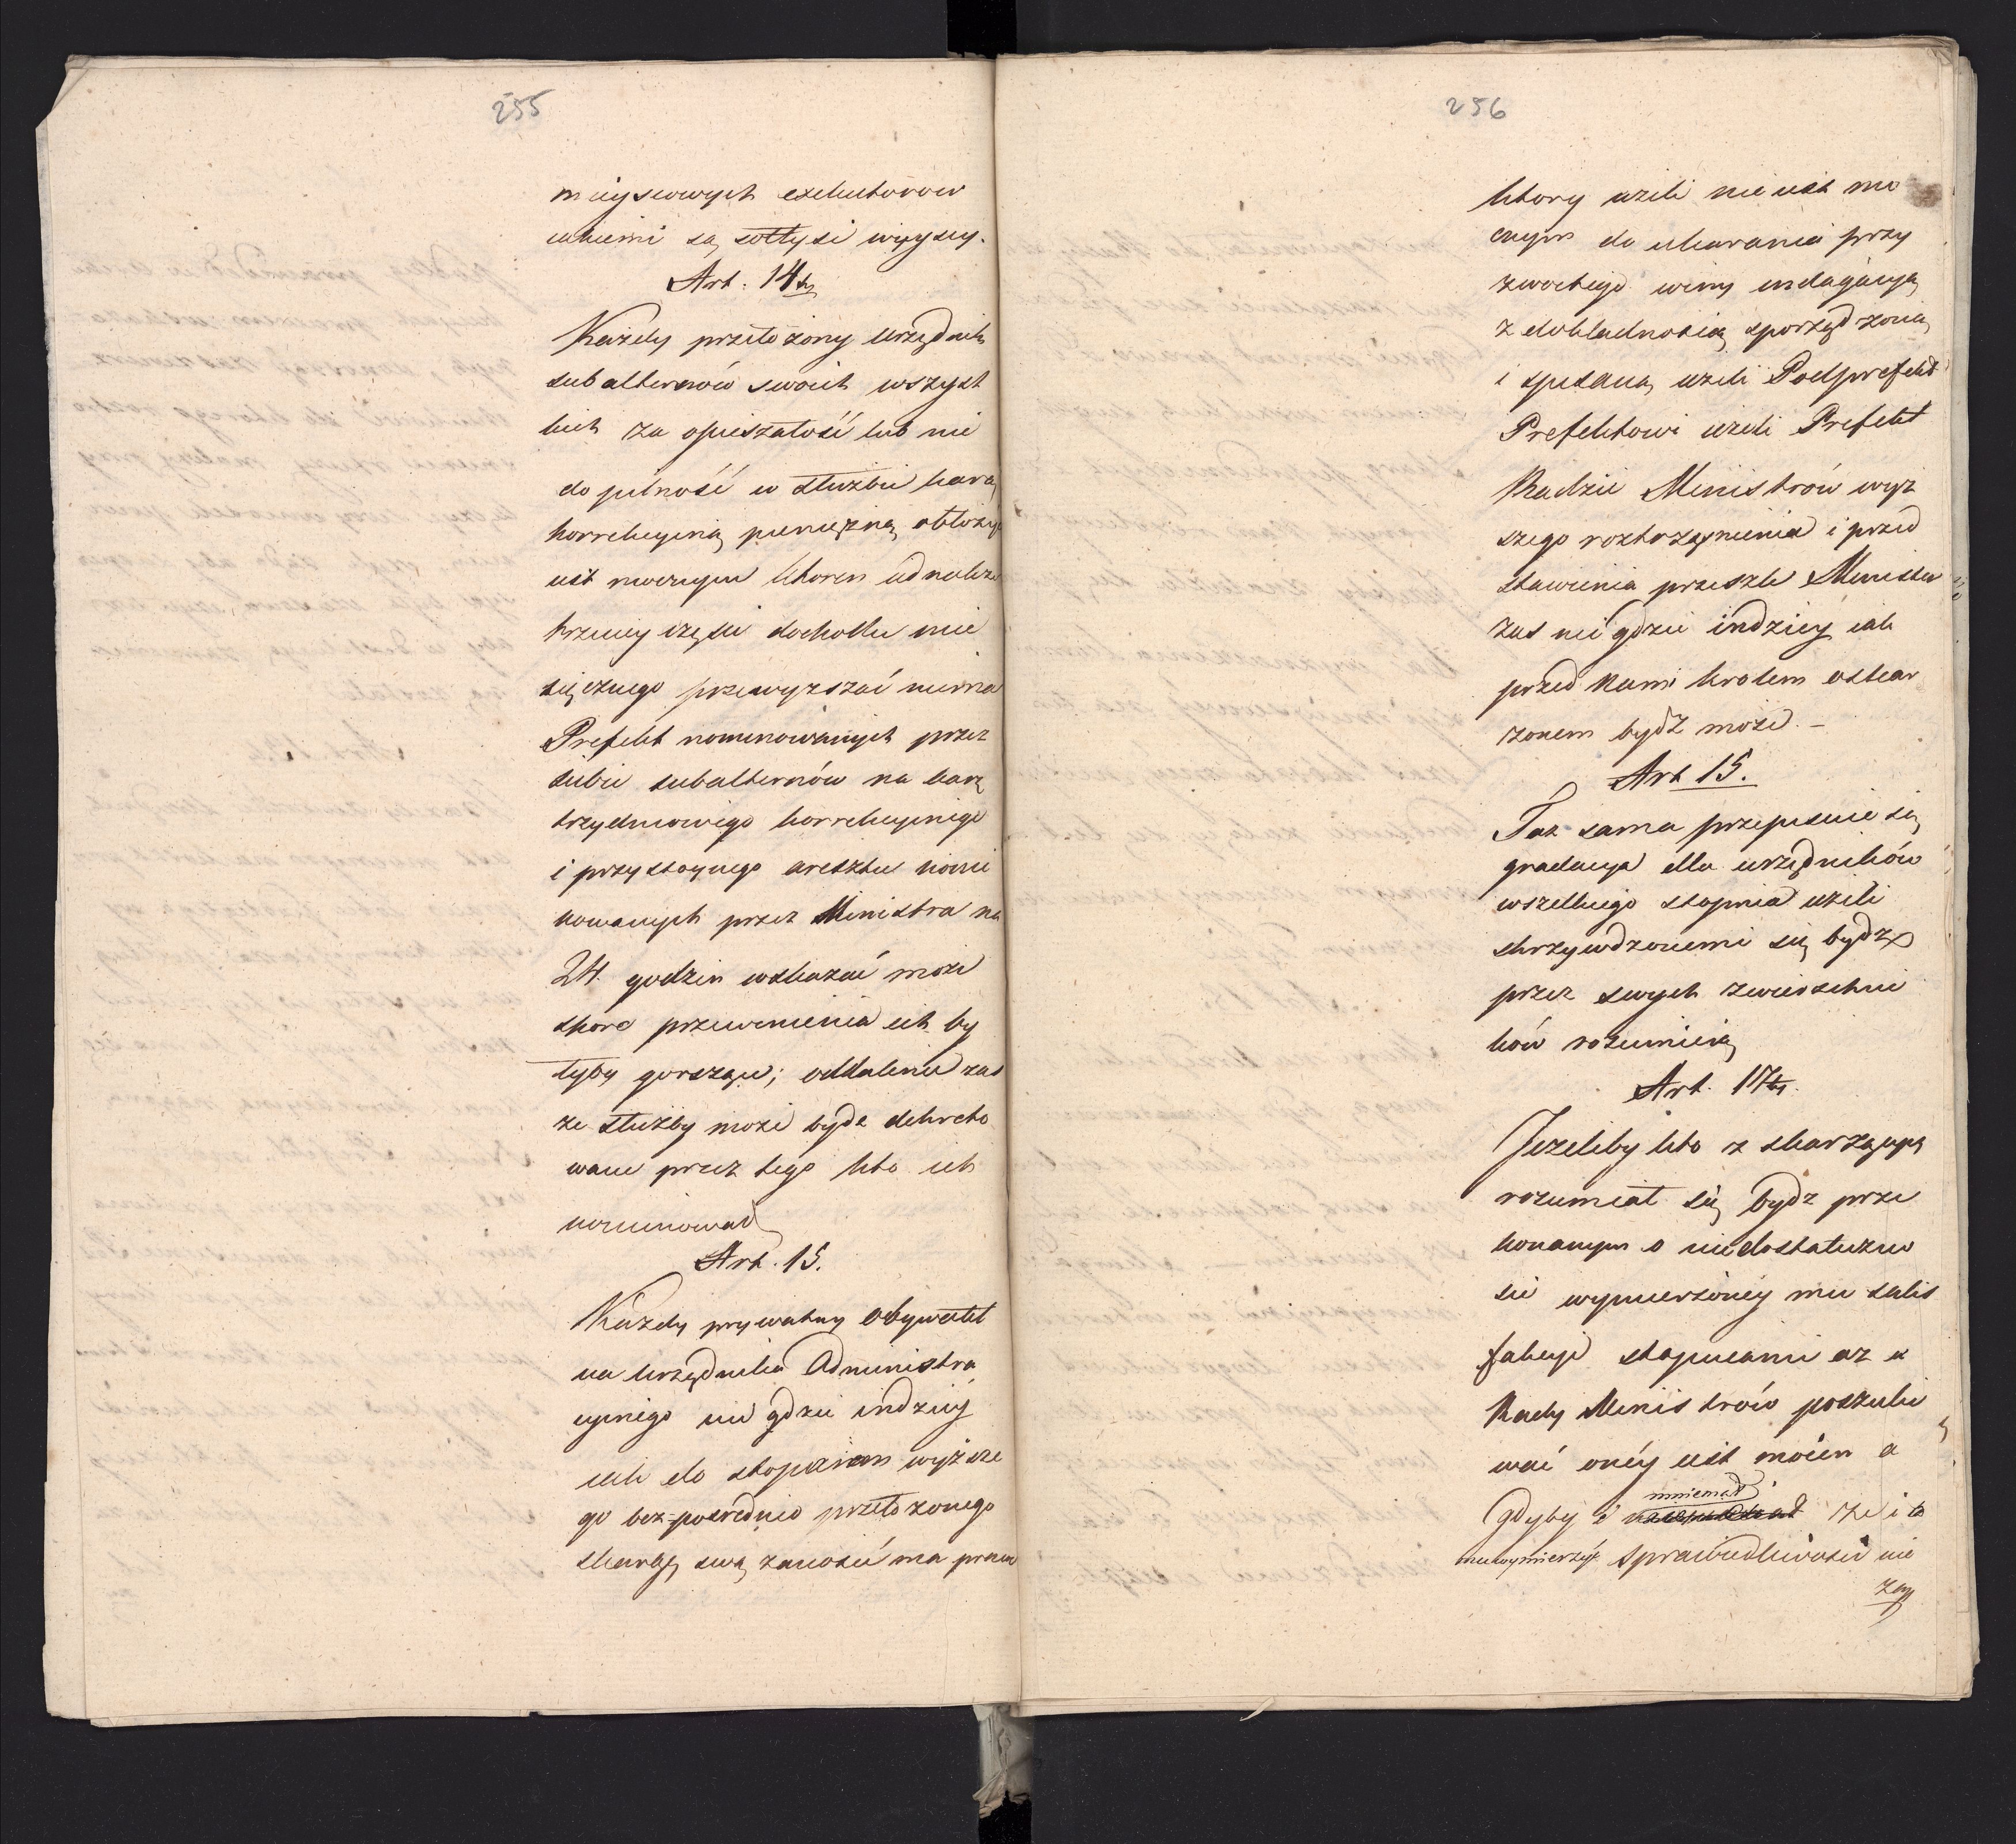 255
mieyscowych exekutorow
iakiemi są sołtysi wyyscy.
Art: 14ty
Każdy przełożony Urzędnik
subalternów swoich wszyst
kich za opieszałość lub nie
dopilność w służbie karą
korrekcyiną pieniężną obłożyć
iest mocnym ktoren iednakże
trzeciey części dochodu mie
sięcznego przewyższać niema
Prefekt nominowanych przez
siebie subalternów na karę
trzydniowego korrekcyinego
i przystoynego aresztu nomi
nowanych przez Ministra na
24. godzin wskazać może
skoro przewinienia ich by
łyby gorszące; oddalenie zas
ze służby może bydz dekreto
wane przez tego kto ich
nominował
Art. 15.
Każdy prywatny obywatel
na Urzędnika Administra
cyinego nie gdzie indziey
iak do stopniem wyższe
go bezposrednio przełożonego
skargę swą zanosić ma prawo
256
ktory ieżeli nie iest mo
cnym do ukarania przy
zwoitego winy indagacyą
z dokładnoscią sporządzoną
i spisaną ieżeli Podprefekt
Prefektowi ieżeli Prefekt
Radzie Ministrów wyż
szego roztrząśnienia i przed
stawienia przeszle Minister
zas nie gdzie indziey iak
przed Nami krolem oskar
żonem bydź może. –
Art 15.
Taż sama przepisuie się
gradacya dla urzędników
wszelkiego stopnia ieżeli
skrzywdzonemi się bydz
przez swych zwierzchni
ków rozumieią
Art. 17ty.
Jeżeliby kto z skarzących
rozumiał się bydz prze
konanym o niedostateczno
sci wymierzoney mu satis
fakcyi stopniami az u
Rady Ministrów poszuki
wać oney iest mocen a
mniemał
gdyby i że i ta
mu wymierzyć sprawiedliwości nie
zay